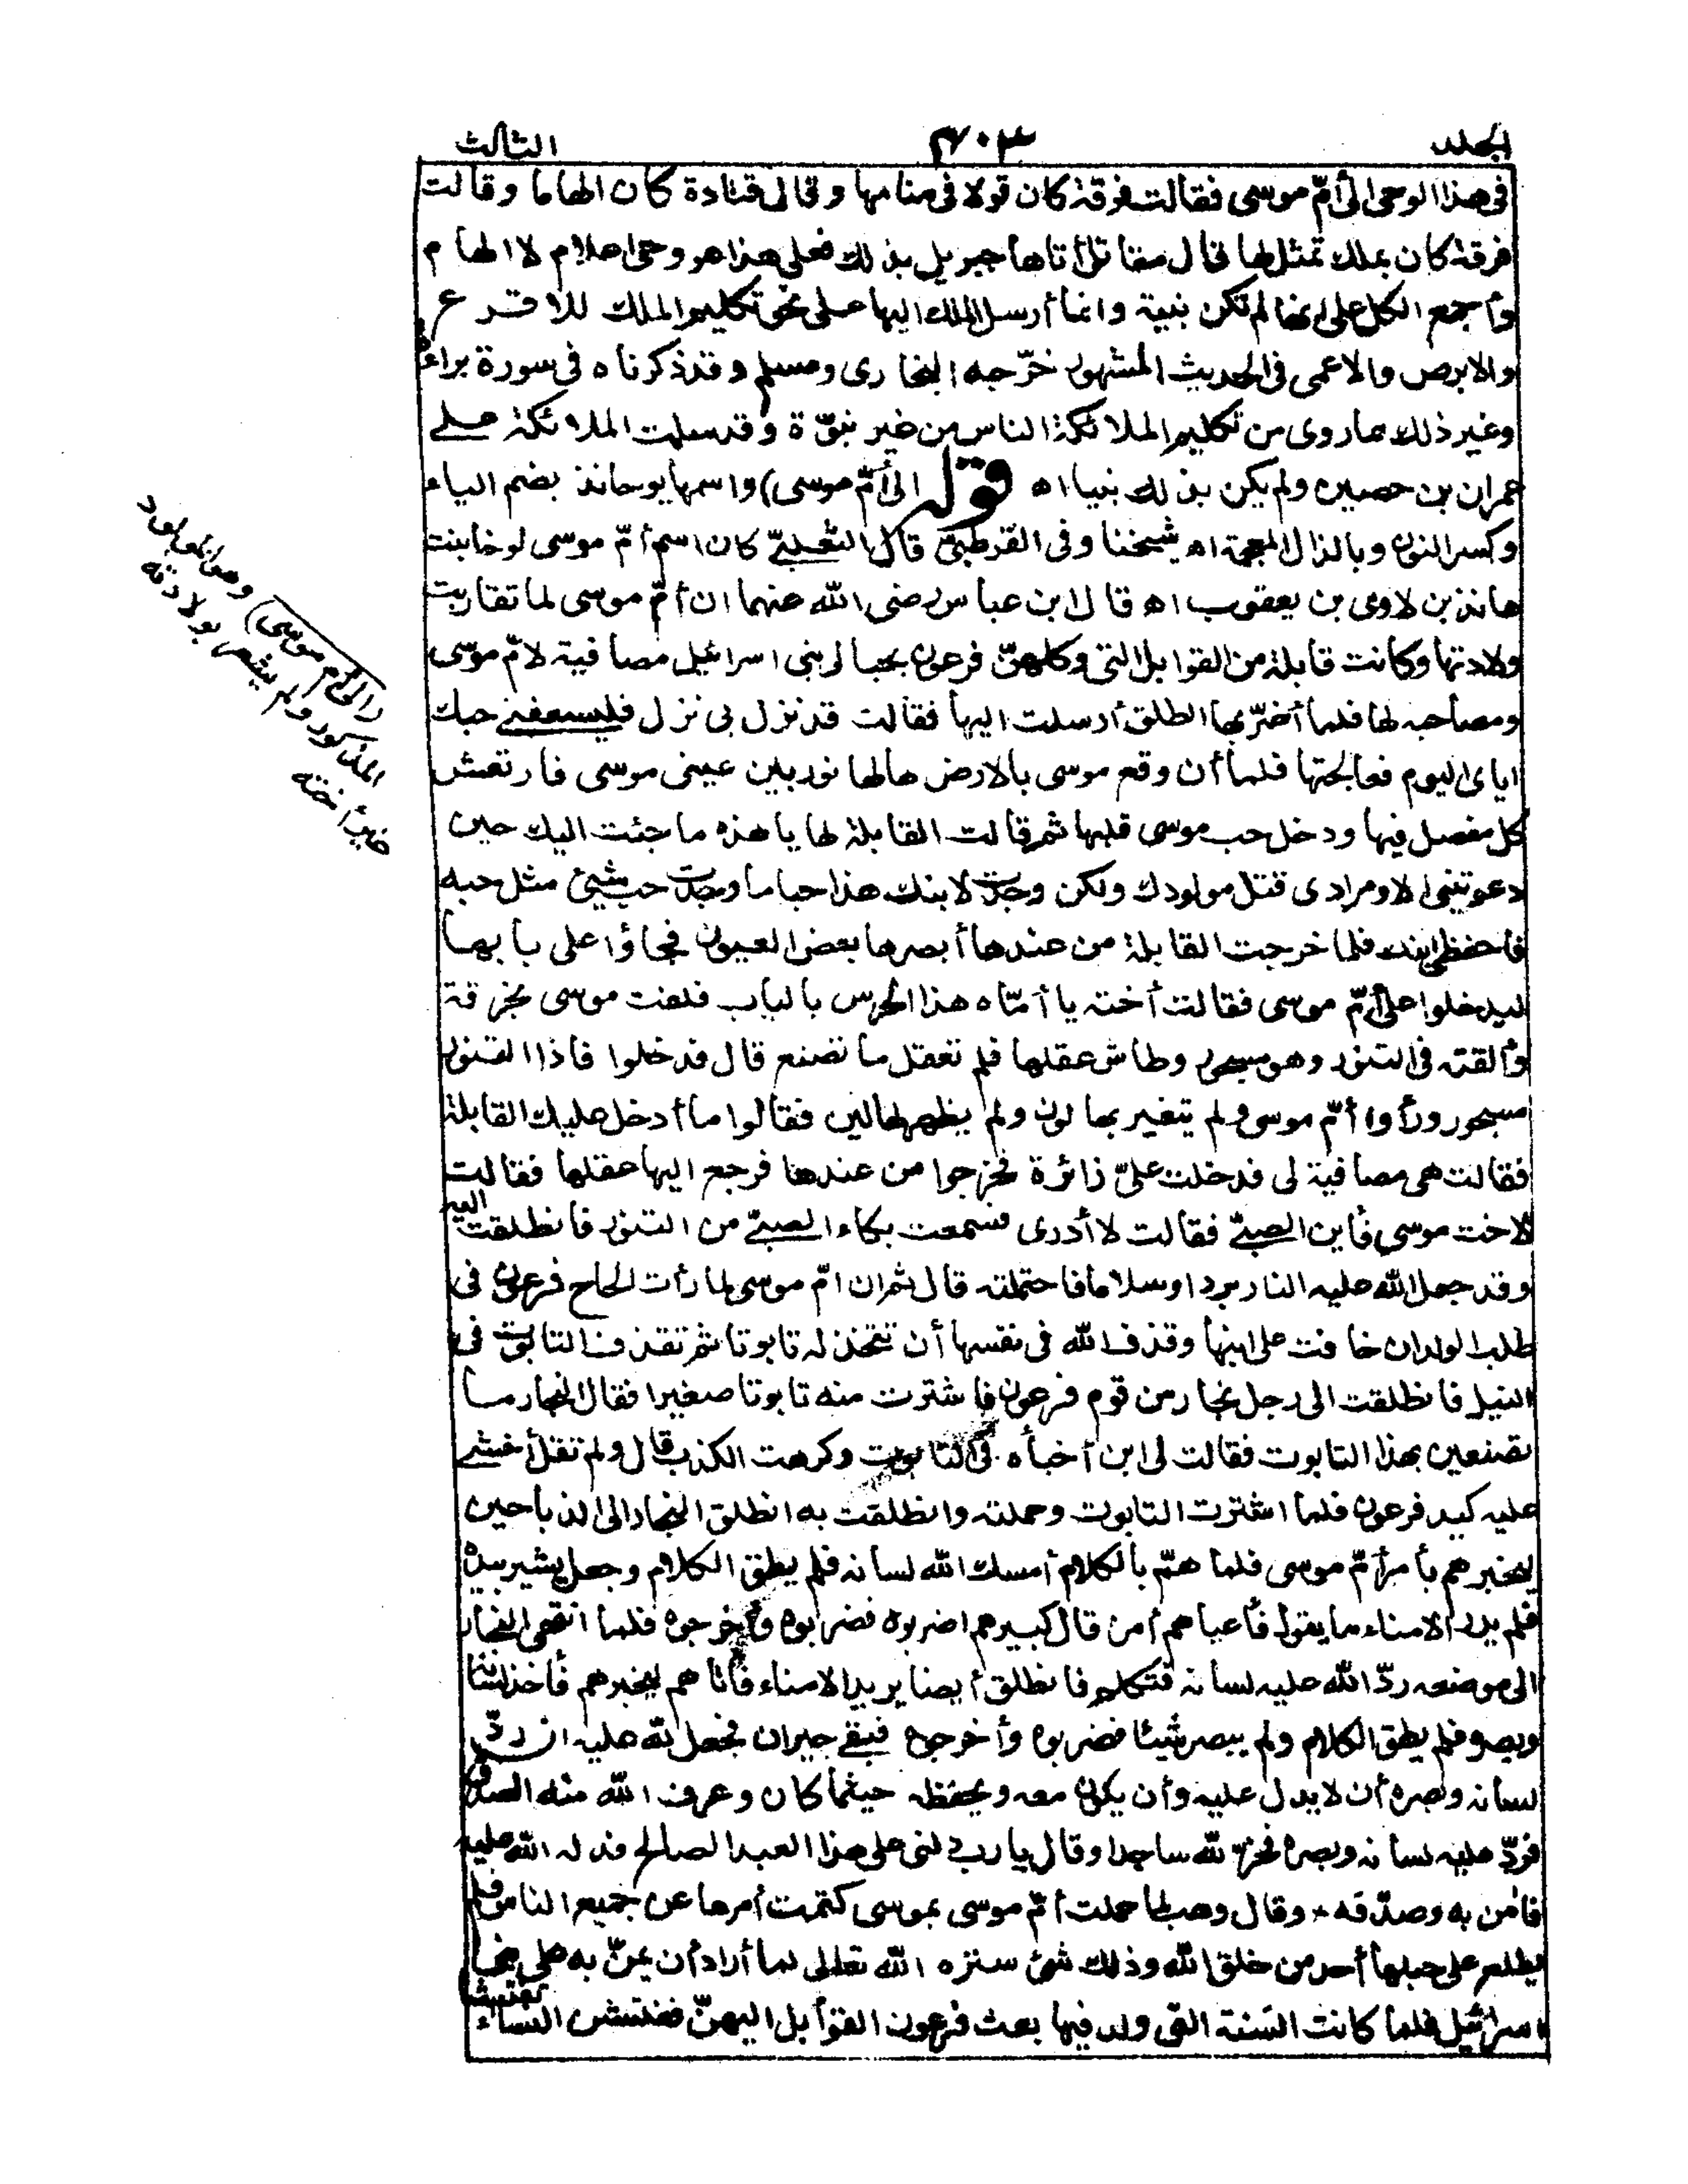 المجلد ٧٠٣ الثالث
فى هذا الوحى الى أمّ موسى فقالت فرقة كان قولا فى منامها وقال قتادة كان الهاما وقالت
فرقة كان بملك تمثل لها قال مقاتل أتاها جبريل بذلك فعلى هذا هو وحى اعلام لا الهام
وأجمع الكل على انها لم تكن نبية وانما أرسل الملك اليها على نحو تكليم الملك للاقرع
والابرص والاعمى فى الحديث المشهور خرّجه البخارى ومسلم وقد ذكرناه فى سورة براءة
وغير ذلك مماروى من تكليم الملائكة الناس من غير نبوّة وقد سلمت الملائكة على
عمران بن حصين ولم يكن بذلك نبيا اه قوله الى أمّ موسى) واسمها يوحانذ بضم الياء
وكسر النون وبالذال المعجمة اه شيخنا وفى القرطبىّ قال الثعلبىّ كان اسم أمّ موسى لوخا بنت
هانذ بن لاوى بن يعقوب اه قال ابن عباس رضى الله عنهما ان أمّ موسى لما تقاربت
ولادتها وكانت قابلة من القوابل التى وكلهنّ فرعون بحبالى بنى اسرائيل مصافية لامّ موسى
ومصاحبه لها فلما أضرّ بها الطلق أرسلت اليها فقالت قد نزل بى نزل فليسعفنى حبك
اياى اليوم فعالجتها فلما أن وقع موسى بالارض هالها نور بين عينى موسى فارتعش
كل مفصل فيها ودخل حب موسى قلبها ثم قالت القابلة لها يا هذه ما جئت اليك حين
دعوتينى الا ومرادى قتل مولودك ولكن وجدت لابنك هذا حبا ما وجدت حب شيئ مثل حبه
فاحفظى ابنك فلما خرجت القابلة من عندها أبصرها بعض العيون فجاؤا على بابها
ليدخلوا على أمّ موسى فقالت أخته يا أمّاه هذا الحرس بالباب فلفت موسى بخرقة
وألقته فى التنور وهو مسجور وطاش عقلها فلم تعقل ما تصنع قال فدخلوا فاذا التنور
مسجور ورأوا أمّ موسى ولم يتغير بها لون ولم يظهر لها لبن فقالوا ما أدخل عليك القابلة
فقالت هى مصافية لى فدخلت علىّ زائرة فخرجوا من عندها فرجع اليها عقلها فقالت
لاخت موسى فأين الصبىّ فقالت لا أدرى فسمعت بكاء الصبىّ من التنور فانطلقت اليه
وقد جعل الله عليه النار بردا وسلاما فاحتملته قال ثم ان امّ موسى لما رأت الحاح فرعون فى
طلب الولدان خافت على ابنها وقذف الله فى نفسها أن تتخذ له تابوتا ثم تقذف التابوت فى
النيل فانطلقت الى رجل نجار من قوم فرعون فاشترت منه تابوتا صغيرا فقال النجار ما
تصنعين بهذا التابوت فقالت لى ابن أخبأه فى التابوت وكرهت الكذب قال ولم تقل أخشى
عليه كيد فرعون فلما اشترت التابوت وحملته وانطلقت به انطلق النجار الى الذباحين
ليخبرهم بأمر أمّ موسى فلما همّ بالكلام أمسك الله لسانه فلم يطق الكلام وجعل يشير بيده
فلم يدر الامناء ما يقول فأعياهم أمره قال كبيرهم اضربوه فضربوه وأخرجوه فلما انتهى النجار
الى موضعه ردّ الله عليه لسانه فتكلم فانطلق أيضا يريد الامناء فأتاهم ليخبرهم فأخذ لسانه
وبصره فلم يطق الكلام ولم يبصر شيئا فضربوه وأخرجوه فبقى حيران فجعل لله عليه ان ردّ
لسانه وبصره أن لا يدل عليه وأن يكون معه ويحفظه حيثما كان وعرف الله منه الصدق
فردّ عليه لسانه وبصره فخرّ لله ساجدا وقال يا رب دلنى على هذا العبد الصالح فدله الله عليه
فآمن به وصدّقه * وقال وهب لما حملت أمّ موسى بموسى كتمت أمرها عن جميع الناس فلم
يطلع على حبلها أحد من خلق الله وذلك شئ ستره الله تعالى لما أراد أن يمنّ به على بنى
اسرائيل فلما كانت السَنة التى ولد فيها بعث فرعون القوابل اليهنّ ففتشن النساء تفتيشا
(الى أم موسى) وهو المولود
المذكور ولم يشعر بولادته
غير أخته